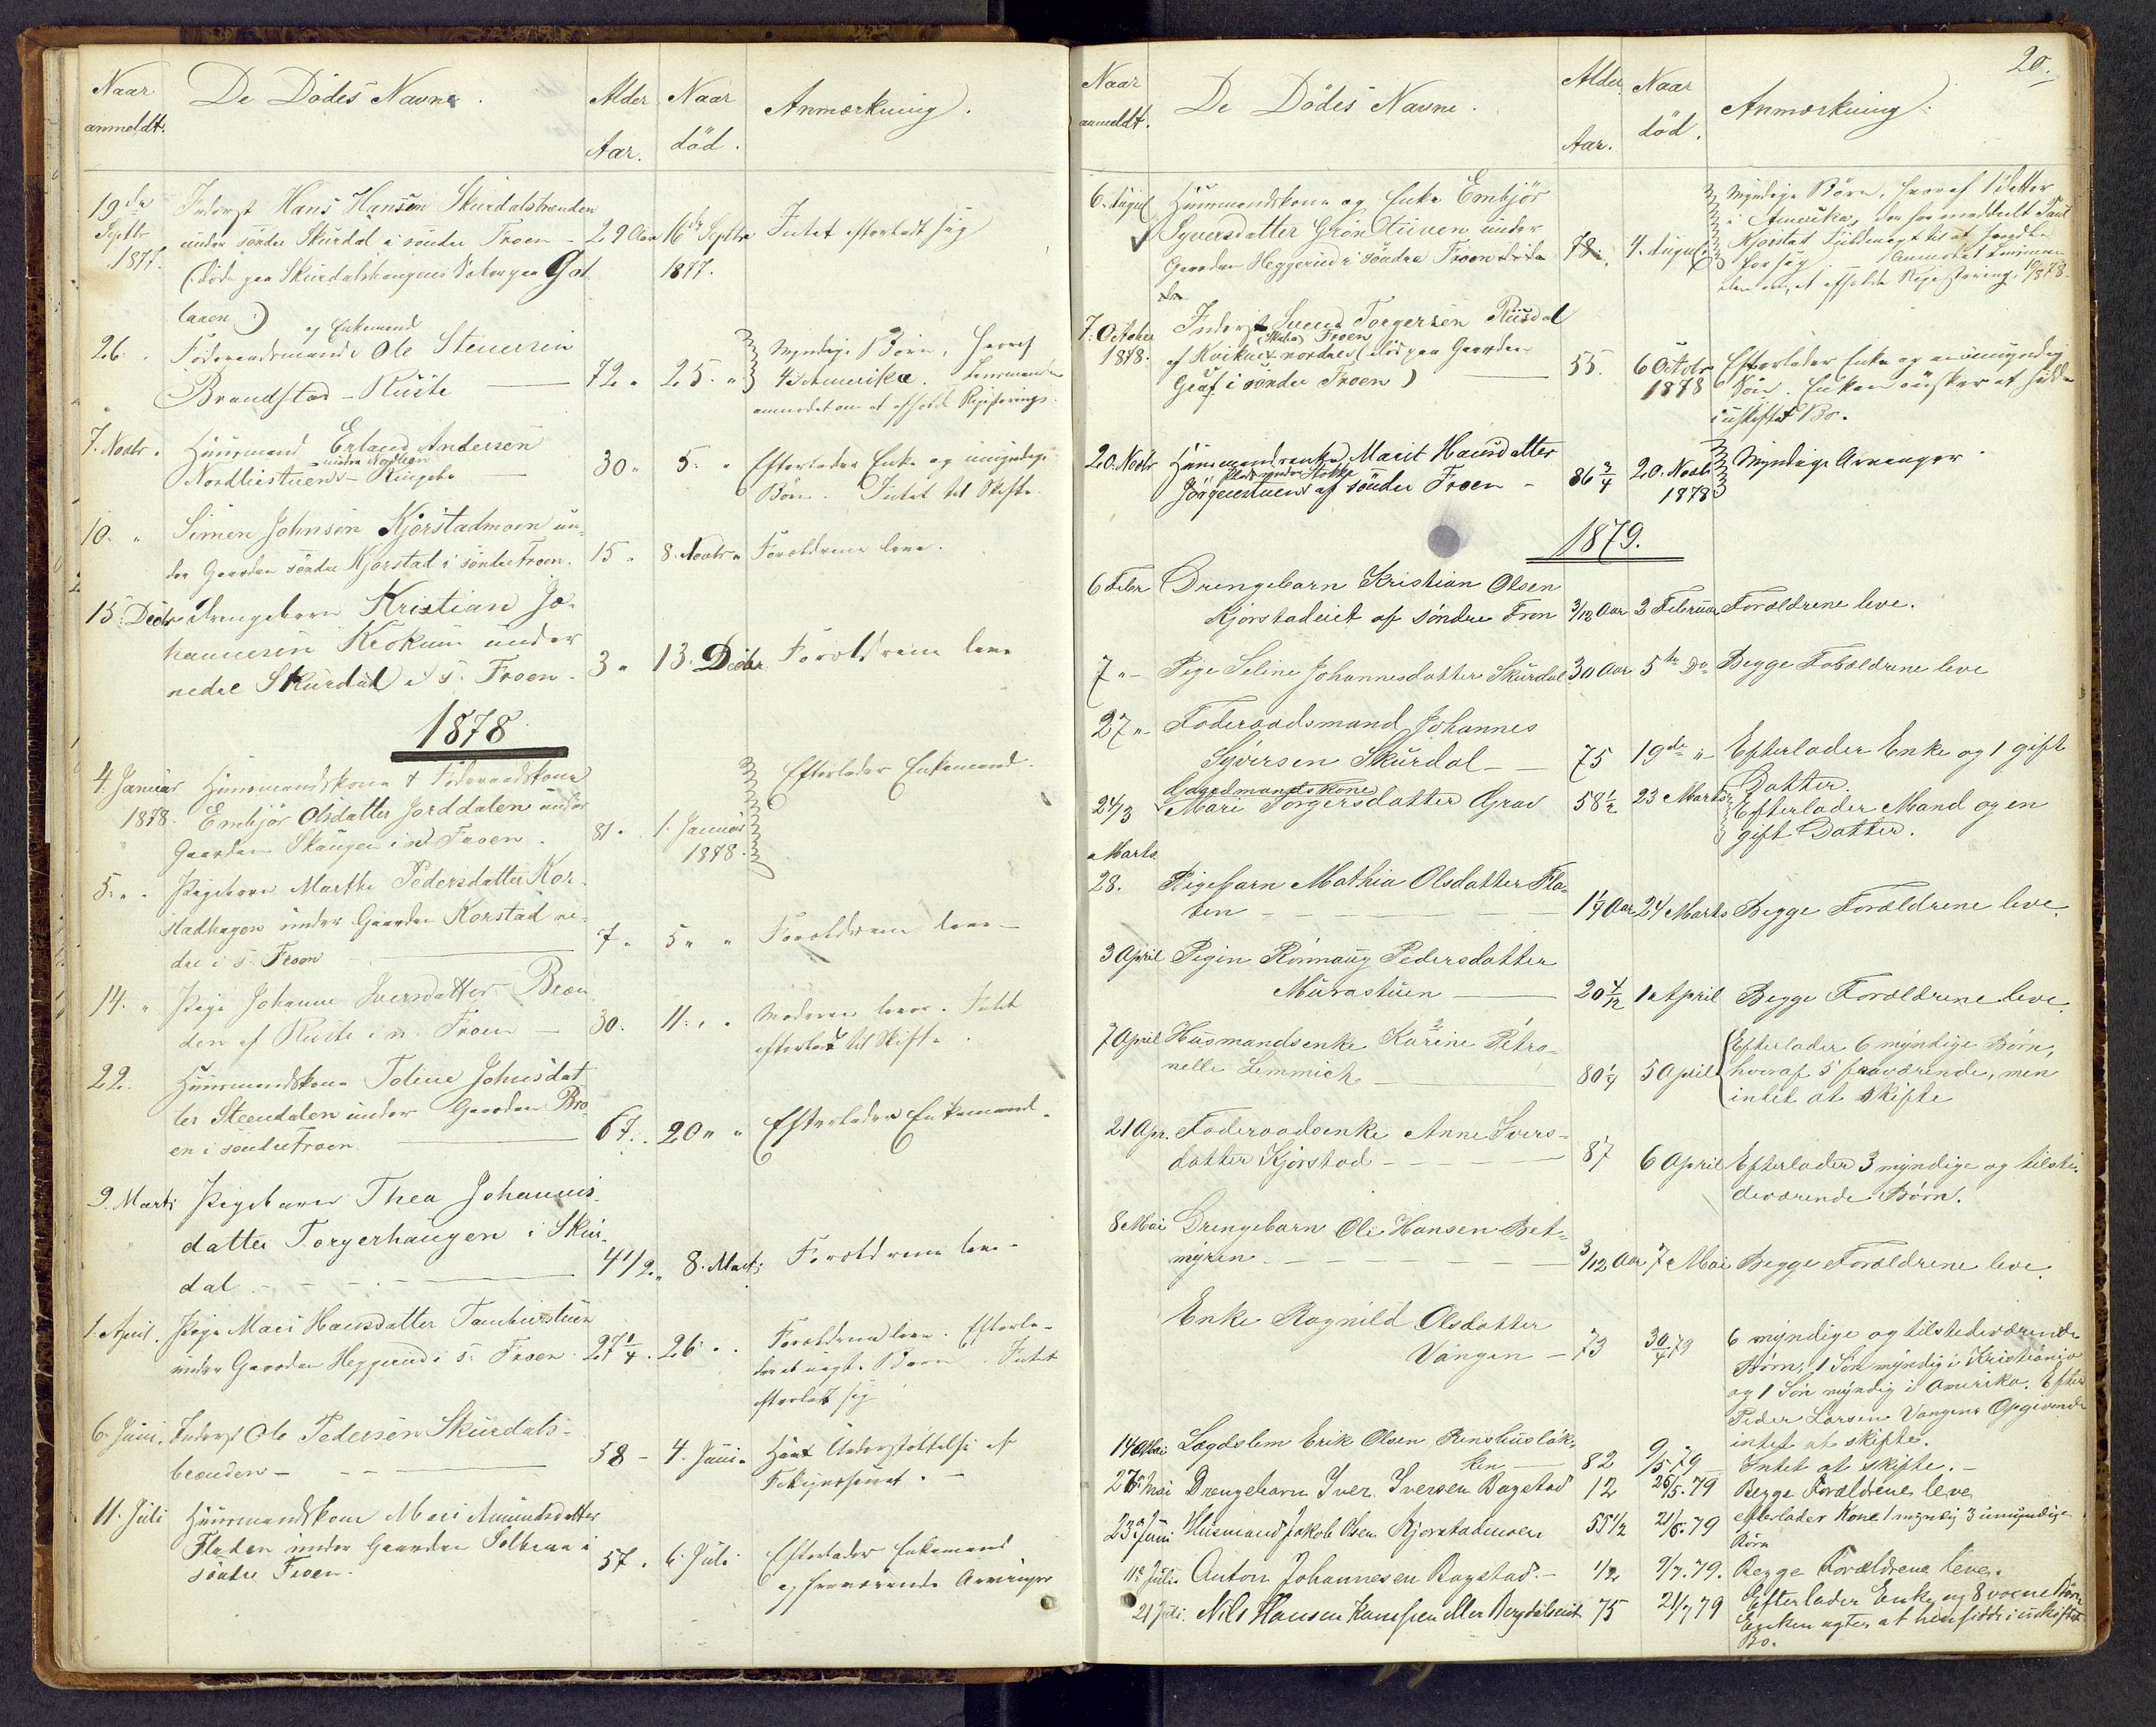 Naar anmeldt. De Dödes Navne. Alder Aar. Naar död. Anmærkning.
19de Septbr 1877. Inderst Hans Hansen Skurdalsbrænden
under søndre Skurdal i søndre Froen - 29 Aar 16de Septbr 1877. Intet efterladt sig
(död paa Skurdalshaugens Sæter paa Gol
laaen)
26. " Föderaadsmand og Enkemand Ole Steuersen
Brandstad - Ruste 72 " 25. " Myndige Börn, hvoraf
4 i Amerika. Lensmanden
anmodet om at afholde Registrering.
7. Novbr. Huusmand Erland Andersen
Nordliestuen under Nordlien - Ringebu 30 " 5. " Efterlader Enke og umyndige
Börn. Intet til Skifte.
10. " Simen Johnsen Kjorstadmoen un-
der Gaarden søndre Kjorstad i søndre Froen. 15 " 8. Novbr " Forældrene leve.
15. Decbr. Drengebarn Kristian Jo-
hannesen Krokum under
nedre Skurdal i s. Froen. 3 " 13. Decbr. Forældrene leve
1878
4. Januar 1878. Huusmandskone & Föderaadskone
Embjör Olsdatter Jorddalen under
Gaarden Skaugen i n. Froen. 81. 1. Januar 1878. Efterlader Enkemand.
5. " " Pigebarn Marthe Pedersdatter Kor-
stadhagen under Gaarden Korstad ne-
dre i s. Froen 7 " 5 " " Forældrene leve -
14. " Pige Johanne Iversdatter Bræn
den af Ruste i n. Froen - 30. 11. " " Moderen lever. Intet
efterladt til Skifte.
22. Huusmandskone Toline Johnsdat
ter Steendalen under Gaarden Bro-
en i søndre Froen 67. 20 " " Efterlader Enkemand.
9. Marts Pigebarn Thea Johannis-
datter Torgerhaugen i Skur-
dal 4 1/2 " 8. Marts Forældrene leve -
1. April. Pige Mari Hansdatter Tamburstuen
under Gaarden Heggerud i s. Froen. 27 1/4. 26. " Forældrene leve. Efterla-
der et uægte Barn. Intet
efterladt sig
6. Juni. Inderst Ole Pedersen Skurdals-
brænden - 58 - 4. Juni. Havt Understöttelse af
Fattigvæsenet. -
11. Juli Huusmandskone Mari Amundsdatter
Fladen under Gaarden Solbraa i
söndre Froen. 57. 6. Juli Efterlader Enkemand
og fraværende Arvinger
20.
Naar anmeldt. De Dödes Navne. Alder Aar. Naar död. Anmærkning.
6. August Huusmandskone og Enke Embjör
Syversdatter Grönstuen under
Gaarden Heggerud i söndre Froen 78. 4. August Myndige Börn, hvoraf 1 datter
i Amerika, der har meddeelt Paul
Kjorstad Fuldmagt til at handle
for sig. Anmodet Lensman
den om, at afholde Registrering,
7. October 1878. Inderst Svend Torgersen Rusdal
af Kvikne nordre Froen (död paa Gaarden
Graf i söndre Froen) 55. 6 Octobr 1878 Efterlader Enke og en umyndig
Sön. Enken önsker at sidde
i uskiftet Bo.
20. Novbr Huusmandsenke Marit Hansdatter
Jörgenstuen Plads under Stokke af søndre Froen - 86 3/4 20. Novbr 1878 Myndige Arvinger.
1879.
6 Febr Drengebarn Kristian Olsen
Kjorstadeiet af söndre Fron 3/12 Aar 2 Februar Forældrene leve.
7 " - Pige Seline Johannesdatter Skurdal 30 Aar 5te Do Begge Forældrene leve
27 " - Föderaadsmand Johannes
Syversen Skurdal - 75 19de " Efterlader Enke og 1 gift
Datter.
24/3 Gaardmandskone
Mari Torgersdatter Grav 58 1/2 23 Marts Efterlader Mand og en
gift Datter.
Marts
28. Pigebarn Mathia Olsdatter Fla-
ten - 1 1/4 Aar 24 Marts Begge Forældrene leve.
3 April Pigen Rönnaug Pedersdatter
Murastuen 20 4/12 1 April Begge Forældrene leve.
7 April Husmandsenke Karine Petro-
nelle Lemmich 80 1/4 5 April Efterlader 6 myndige Börn,
hvoraf 5 fraværende, men
intet at skifte
21 Apr. Föderaadsenke Anne Ivers-
datter Kjorstad 87 6 April Efterlader 3 myndige og tilste-
deværende Börn.
8 Mai Drengebarn Ole Hansen Bet-
myren 3/12 Aar 7 Mai Begge Forældrene leve.
Enke Ragnild Olsdatter
Vangen - 73 30/4 79 6 myndige og tilstedeværende
Börn, 1 Sön myndig i Kristiania
og 1 Sön myndig i Amerika. Efter
Peder Larsen Vangens Opgivende
intet at skifte.
14 Mai Lægdslem Erik Olsen Renshuslök-
ken 82 9/5 79 Intet at skifte. -
27 Mai Drengebarn Iver Iversen Bagstad 12 26/5. 79 Begge Forældrene leve
23 Juni Husmand Jakob Olsen Kjorstadmoen 55 1/2 21/6. 79 efterlader Kone 1 myndig 3 umyndige
Börn
11 Juli Anton Johannesen Bagstad. - 1/2 9/7. 79. Begge Forældrene leve.
21 Juli. Nils Hansen eller Bergdalseiet 75 21/7 79 Efterlader Enke og 8 voxne Börn
Enken agter at hensidde i uskiftet
Bo.